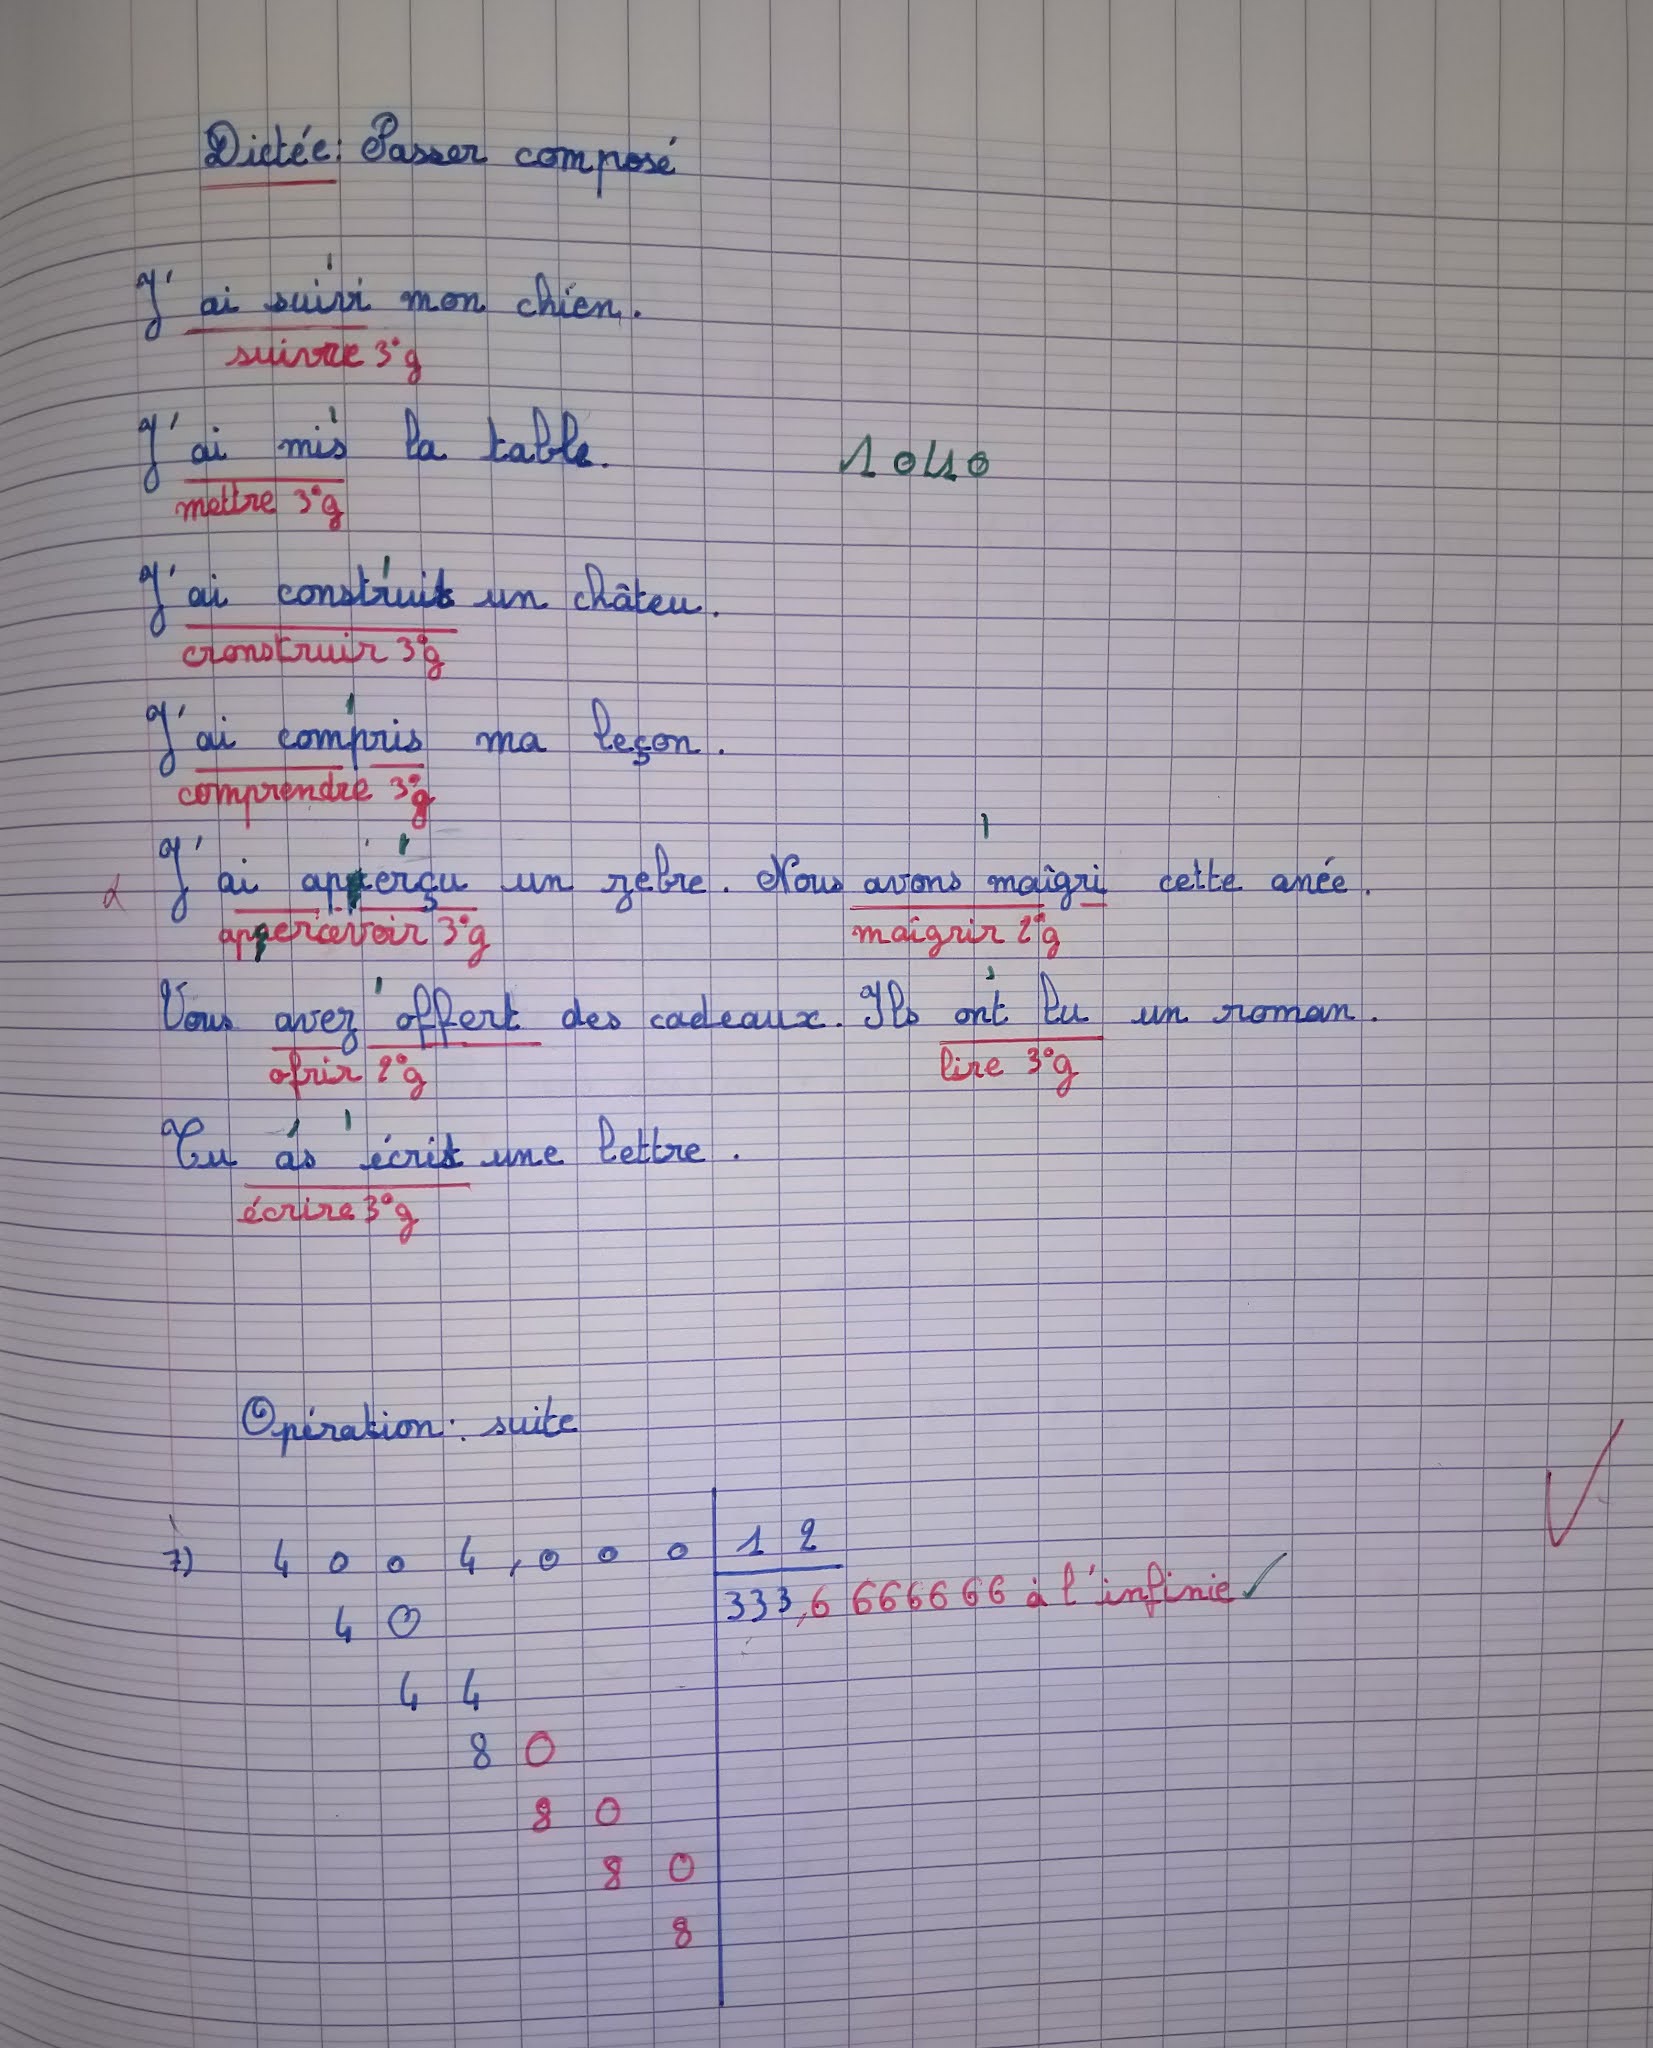 Dictée: Passer composé
J'ai suivi mon chien.
suivre 3°g
J'ai mis la table.
mettre 3°g
J'ai construit un châteu.
cronstruir 3°g
J'ai compris ma leçon.
comprendre 3°g
J'ai aperçu un zebre. Nous avons maîgri cette anée.
apercevoir 3°g maîgrir 2°g
Vous avez offert des cadeaux. Ils ont lu un roman.
ofrir 2°g lire 3°g
Tu as écrit une lettre.
écrire 3°g
Opération: suite
7) 4004,000 12
40 333,6 666666 à l'infinie ✓
44
80
80
80
8